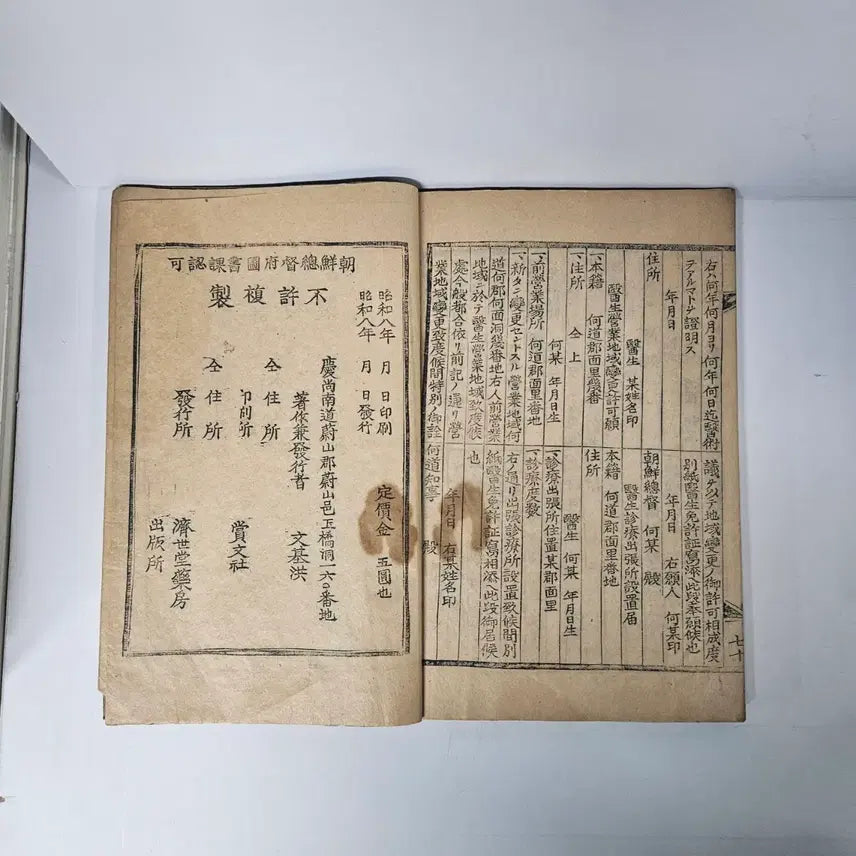 右ハ何年何月ヨリ何年何日迄醫術
テアルマトテ證明ス
年月日
住所
醫生 某姓名印
醫生營業地域變更許可願
一、本籍 何道郡面里幾番
一、住所 仝上
何某 年月日生
一、前營業場所 何道郡面里番地
一、新タニ變更セントスル營業地域何
道何郡何面洞幾番地右人前營業
地域ニ於テ醫生營業地域致度候
處今般都合依リ前記ノ通リ營
業地域變更致度候間特別ノ御詮
議ヲ以テ地域變更ノ御許可相成度
別紙醫生免許証寫添ヘ此段奉願候也
年月日 右願人 何某印
朝鮮總督 何某 殿
醫生診療出張所設置届
本籍 何道郡面里番地
住所
醫生 何某 年月日生
一、診療出張所住置某郡面里
一、診療度數
右ノ通リ出張診療所設置致候間別
紙醫生免許証寫相添ヘ此段御届候
也
年月日 右某姓名印
何道知事 殿
七十
朝鮮總督府圖書課認可
不許複製
昭和八年 月 日印刷
昭和八年 月 日發行
定價金 五圓也
慶尚南道蔚山郡蔚山邑玉橋洞一六〇番地
著作兼發行者 文基洪
仝住所
印刷所 賞文社
仝住所
發行所 濟世堂藥房
出版所